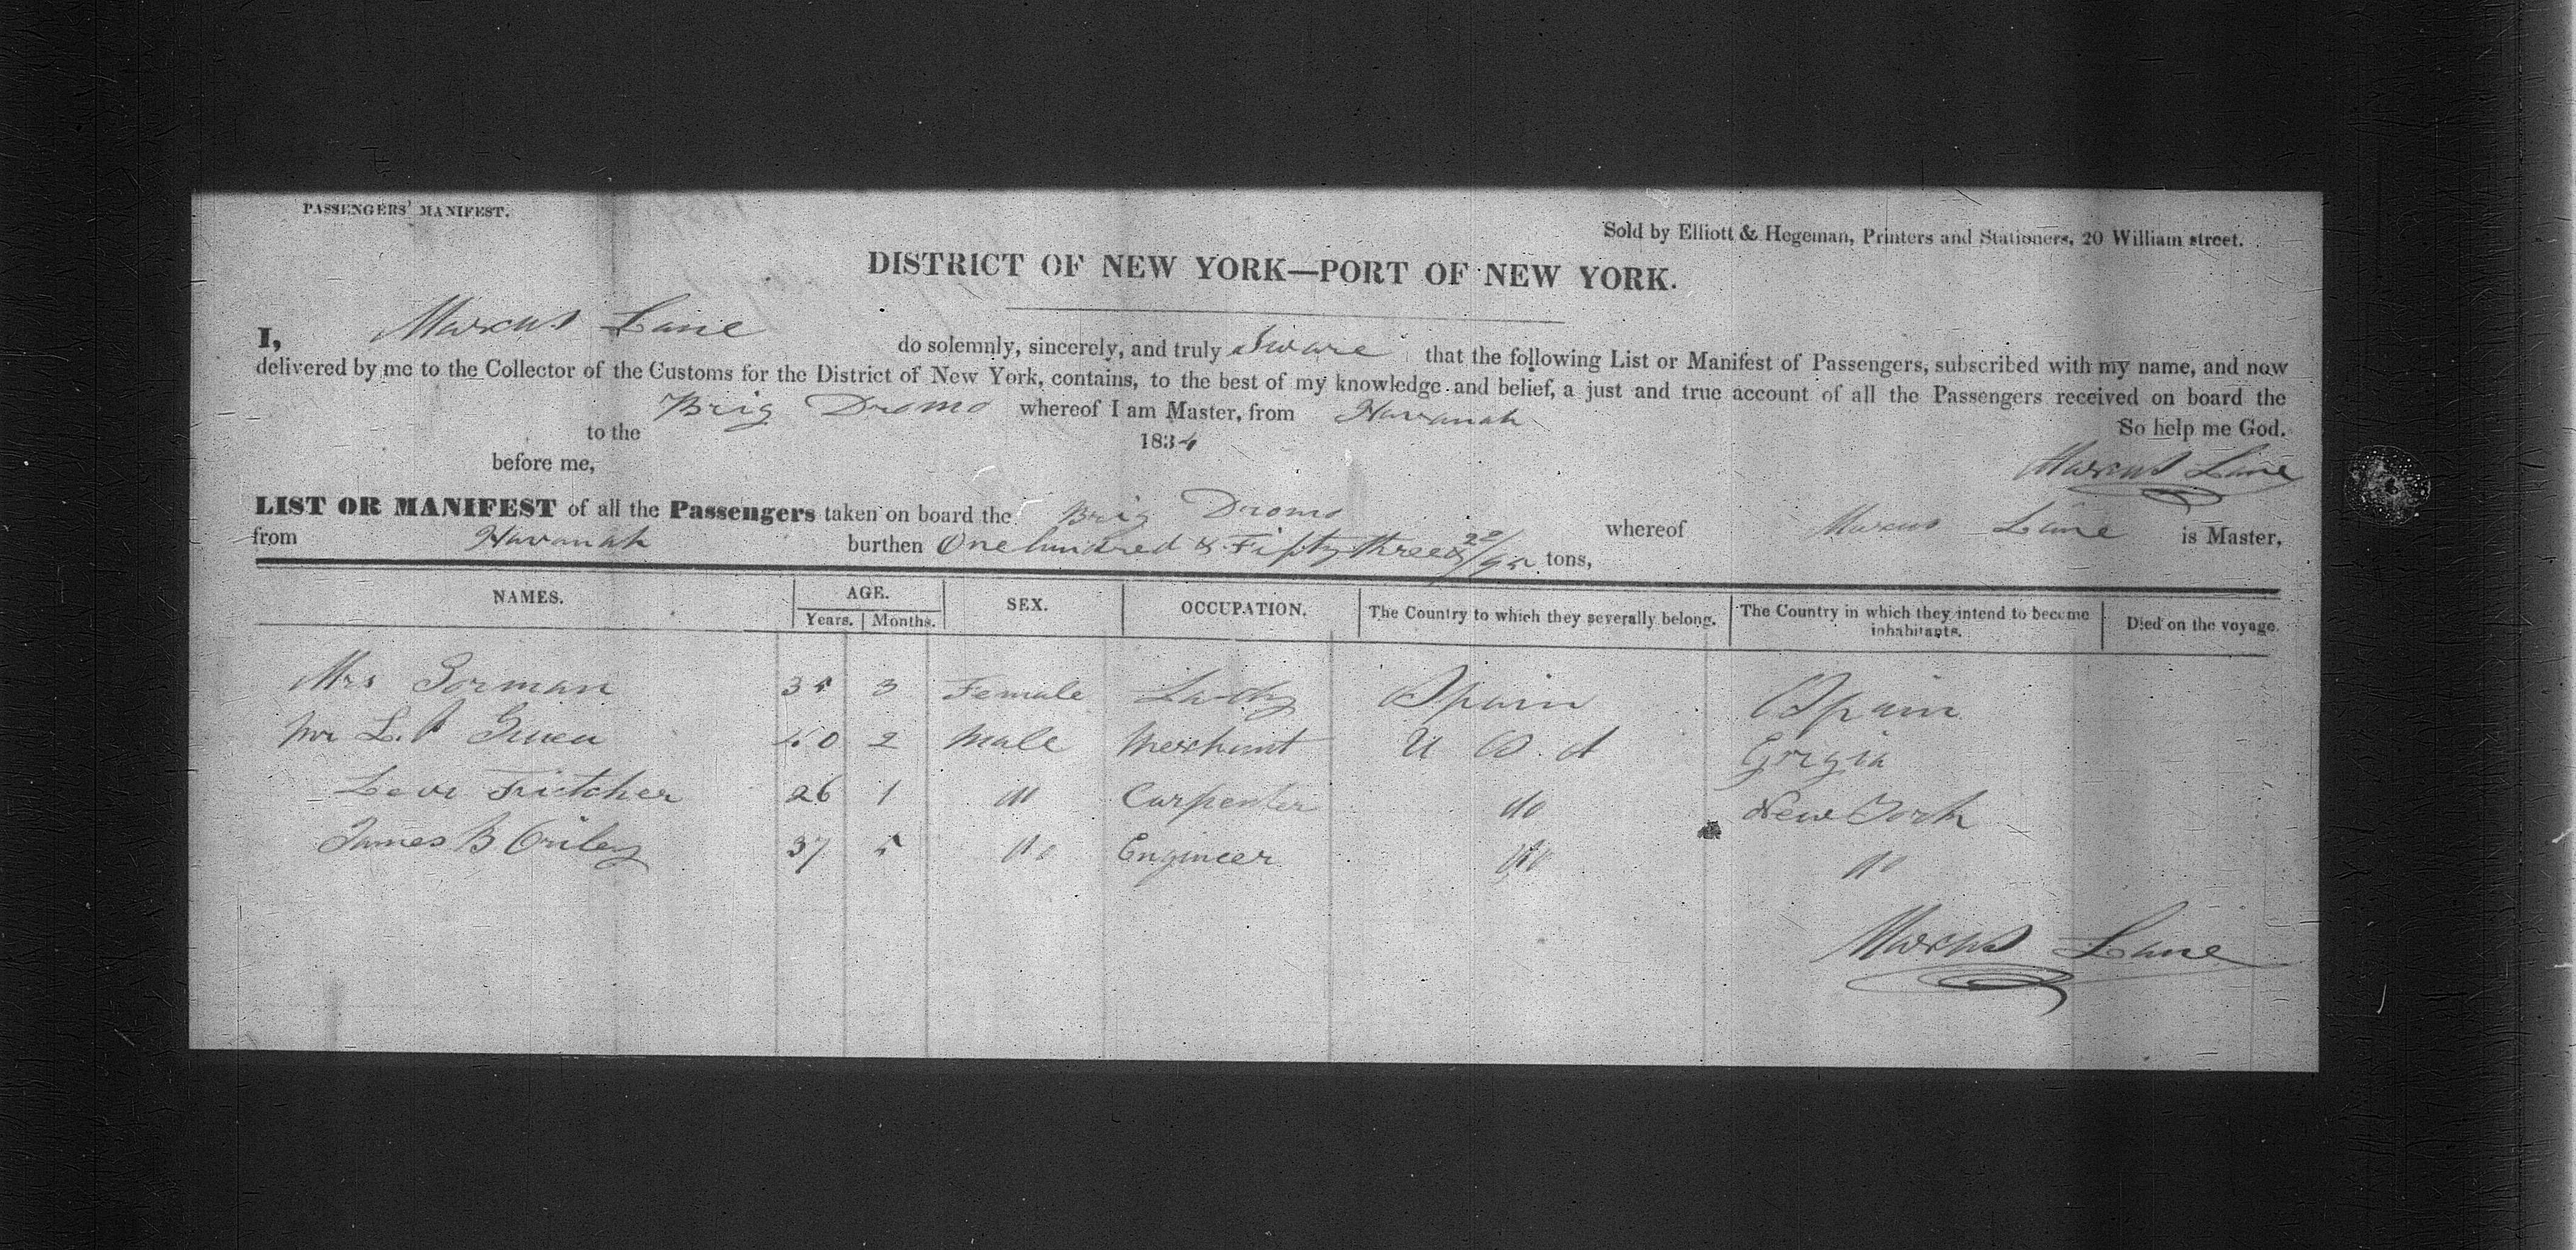 PASSENGERS' MANIFEST.
Sold by Elliott & Hegeman, Printers and Stationers, 20 William street.
DISTRICT OF NEW YORK—PORT OF NEW YORK.
I, Marcus Lane do solemnly, sincerely, and truly Sware that the following List or Manifest of Passengers, subscribed with my name, and now
delivered by me to the Collector of the Customs for the District of New York, contains, to the best of my knowledge and belief, a just and true account of all the Passengers received on board the
Brig Dromo whereof I am Master, from Havanah
to the 1834 So help me God.
before me, Marcus Lane
LIST OR MANIFEST of all the Passengers taken on board the Brig Dromo whereof Marcus Lane is Master,
from Havanah burthen One hundred & Fifty three & 20/95 tons,
NAMES. AGE. SEX. OCCUPATION. The Country to which they severally belong. The Country in which they intend to become inhabitants. Died on the voyage.
Years. Months.
Mrs Gorman 35 3 Female Lady Spain Spain
Mr L. P 40 2 Male Merchant U S. A Gorgia
Levi Fritcher 26 1 do Carpenter do New York
James B Oriley 37 5 do Engineer do do
Marcus Lane